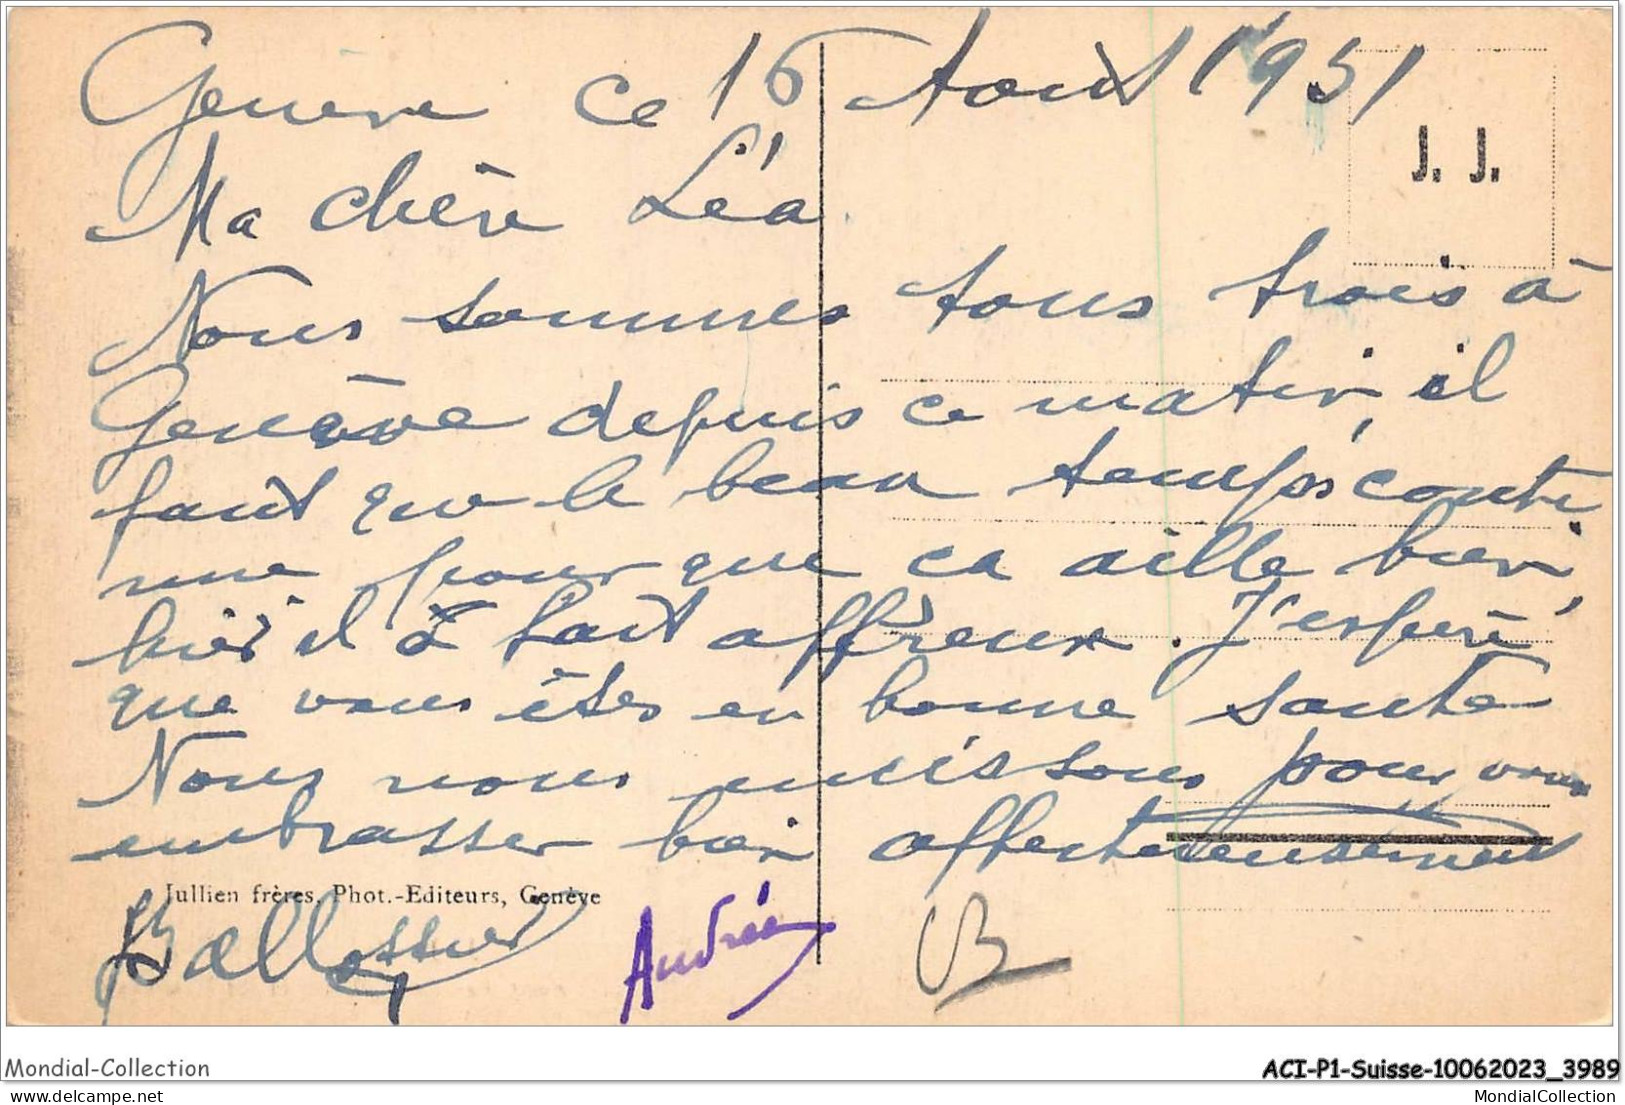 Genève ce 16 Aout 1931
J. J.
Ma chère Léa.
Nous sommes tous trois à
Genève depuis ce matin, il
faut que le beau temps conti
nue pour que ca aille bien,
hier il a fait affreux. J'espère
que vous êtes en bonne santé
Nous nous unissons pour vous
embrasser bien affectueusement
Jullien frères, Phot.-Editeurs, Genève
Andrée
B
Mondial-Collection
ACI-P1-Suisse-10062023_3989
www.delcampe.net
MondialCollection